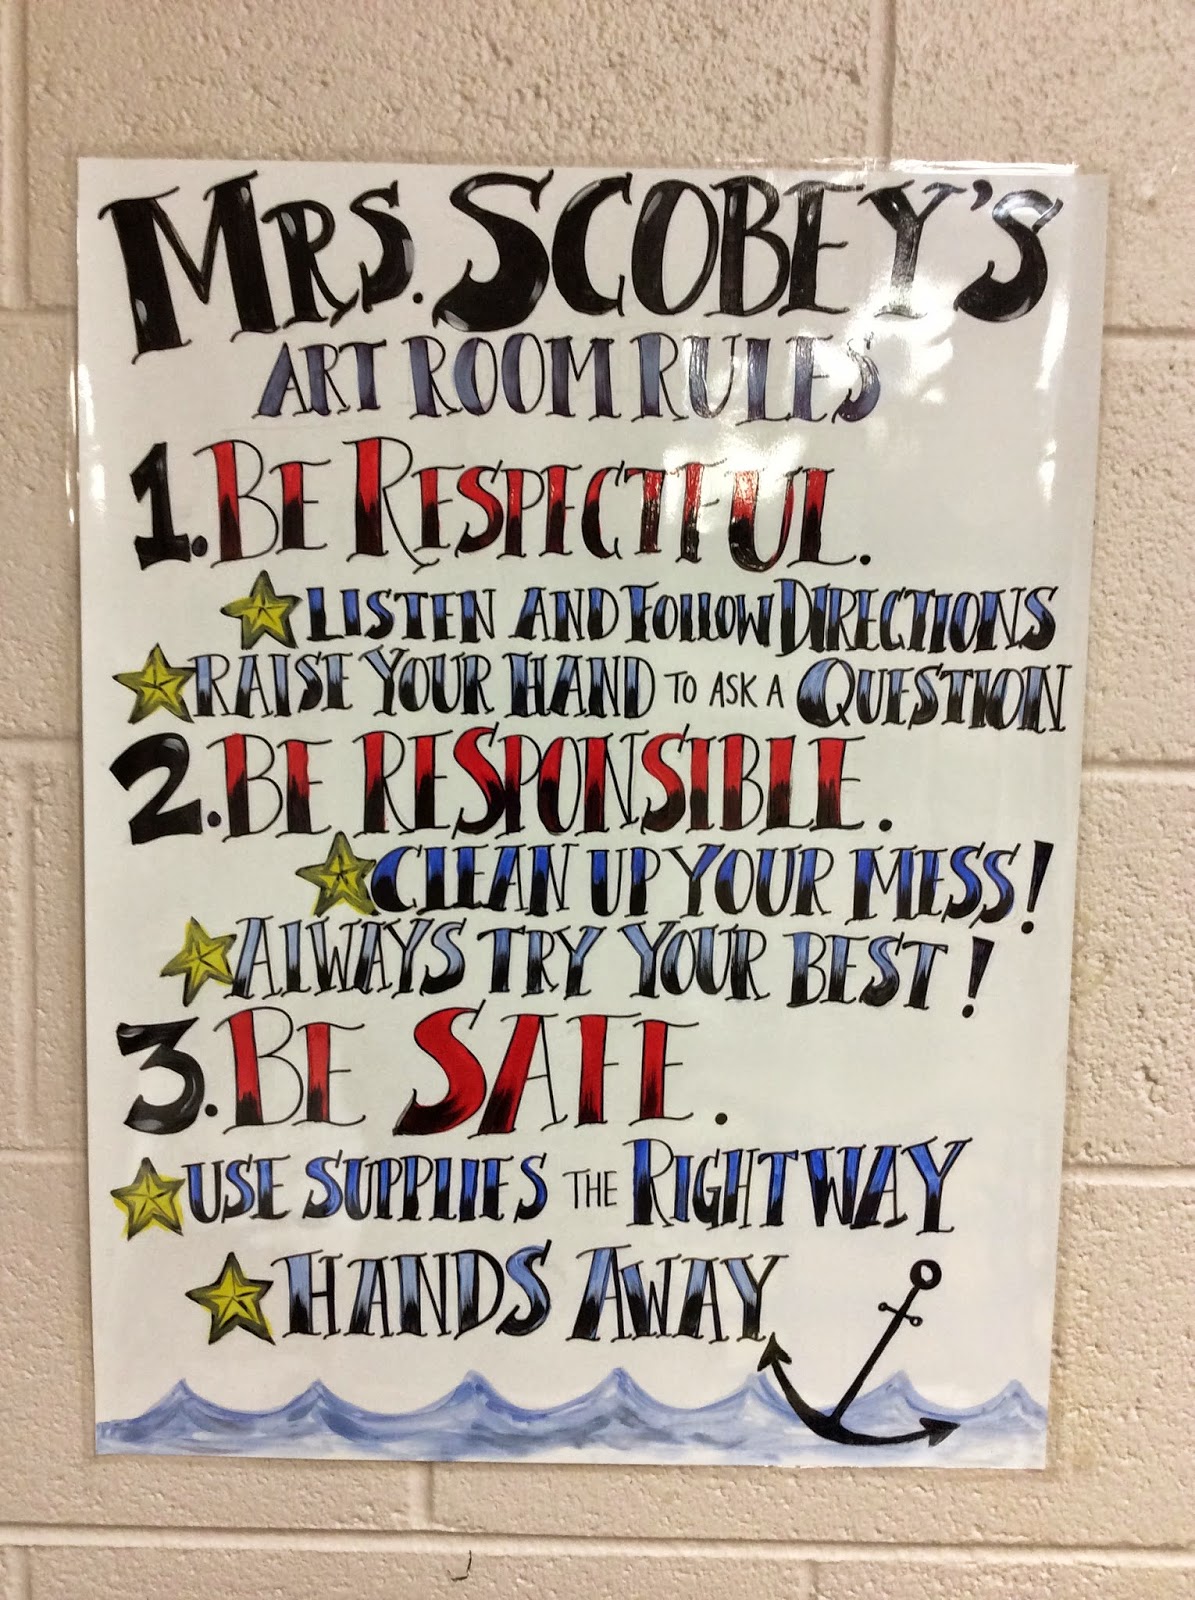 MRS. SCOBEY'S
ART ROOM RULES
1. BE RESPECTFUL.
LISTEN AND FOLLOW DIRECTIONS
RAISE YOUR HAND TO ASK A QUESTION
2. BE RESPONSIBLE.
CLEAN UP YOUR MESS!
ALWAYS TRY YOUR BEST!
3. BE SAFE.
USE SUPPLIES THE RIGHT WAY
HANDS AWAY